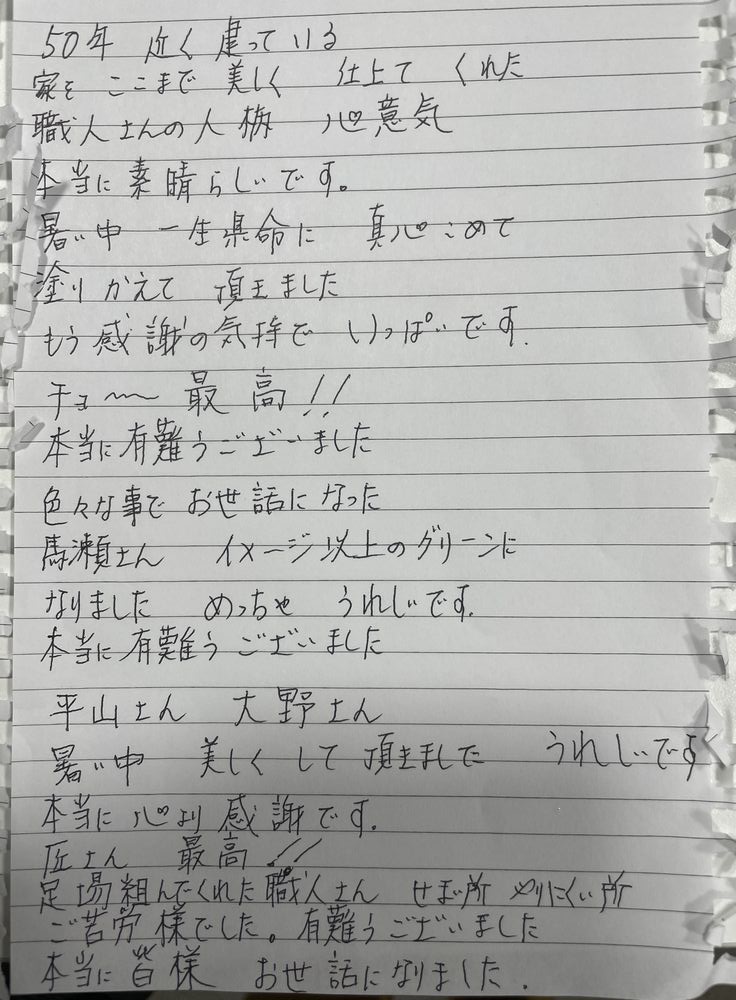 50年 近く 建っている
家を ここまで 美しく 仕上て くれた
職人さんの人梅 心意気
本当に素晴らしいです。
暑い中 一生県命に 真心こめて
塗りかえて 頂きました
もう感謝の気持で いっぱいです.
チョ〜〜 最高!!
本当に有難うございました
色々な事で お世話になった
馬瀬さん イメージ以上のグリーンに
なりました めっちゃ うれしいです.
本当に有難うございました
平山さん 大野さん
暑い中 美しくして頂きました うれしいです
本当に心より感謝です.
匠さん 最高!!
足場組んでくれた職人さん せまい所 やりにくい所
ご苦労様でした。有難うございました
本当に皆様 お世話になりました.